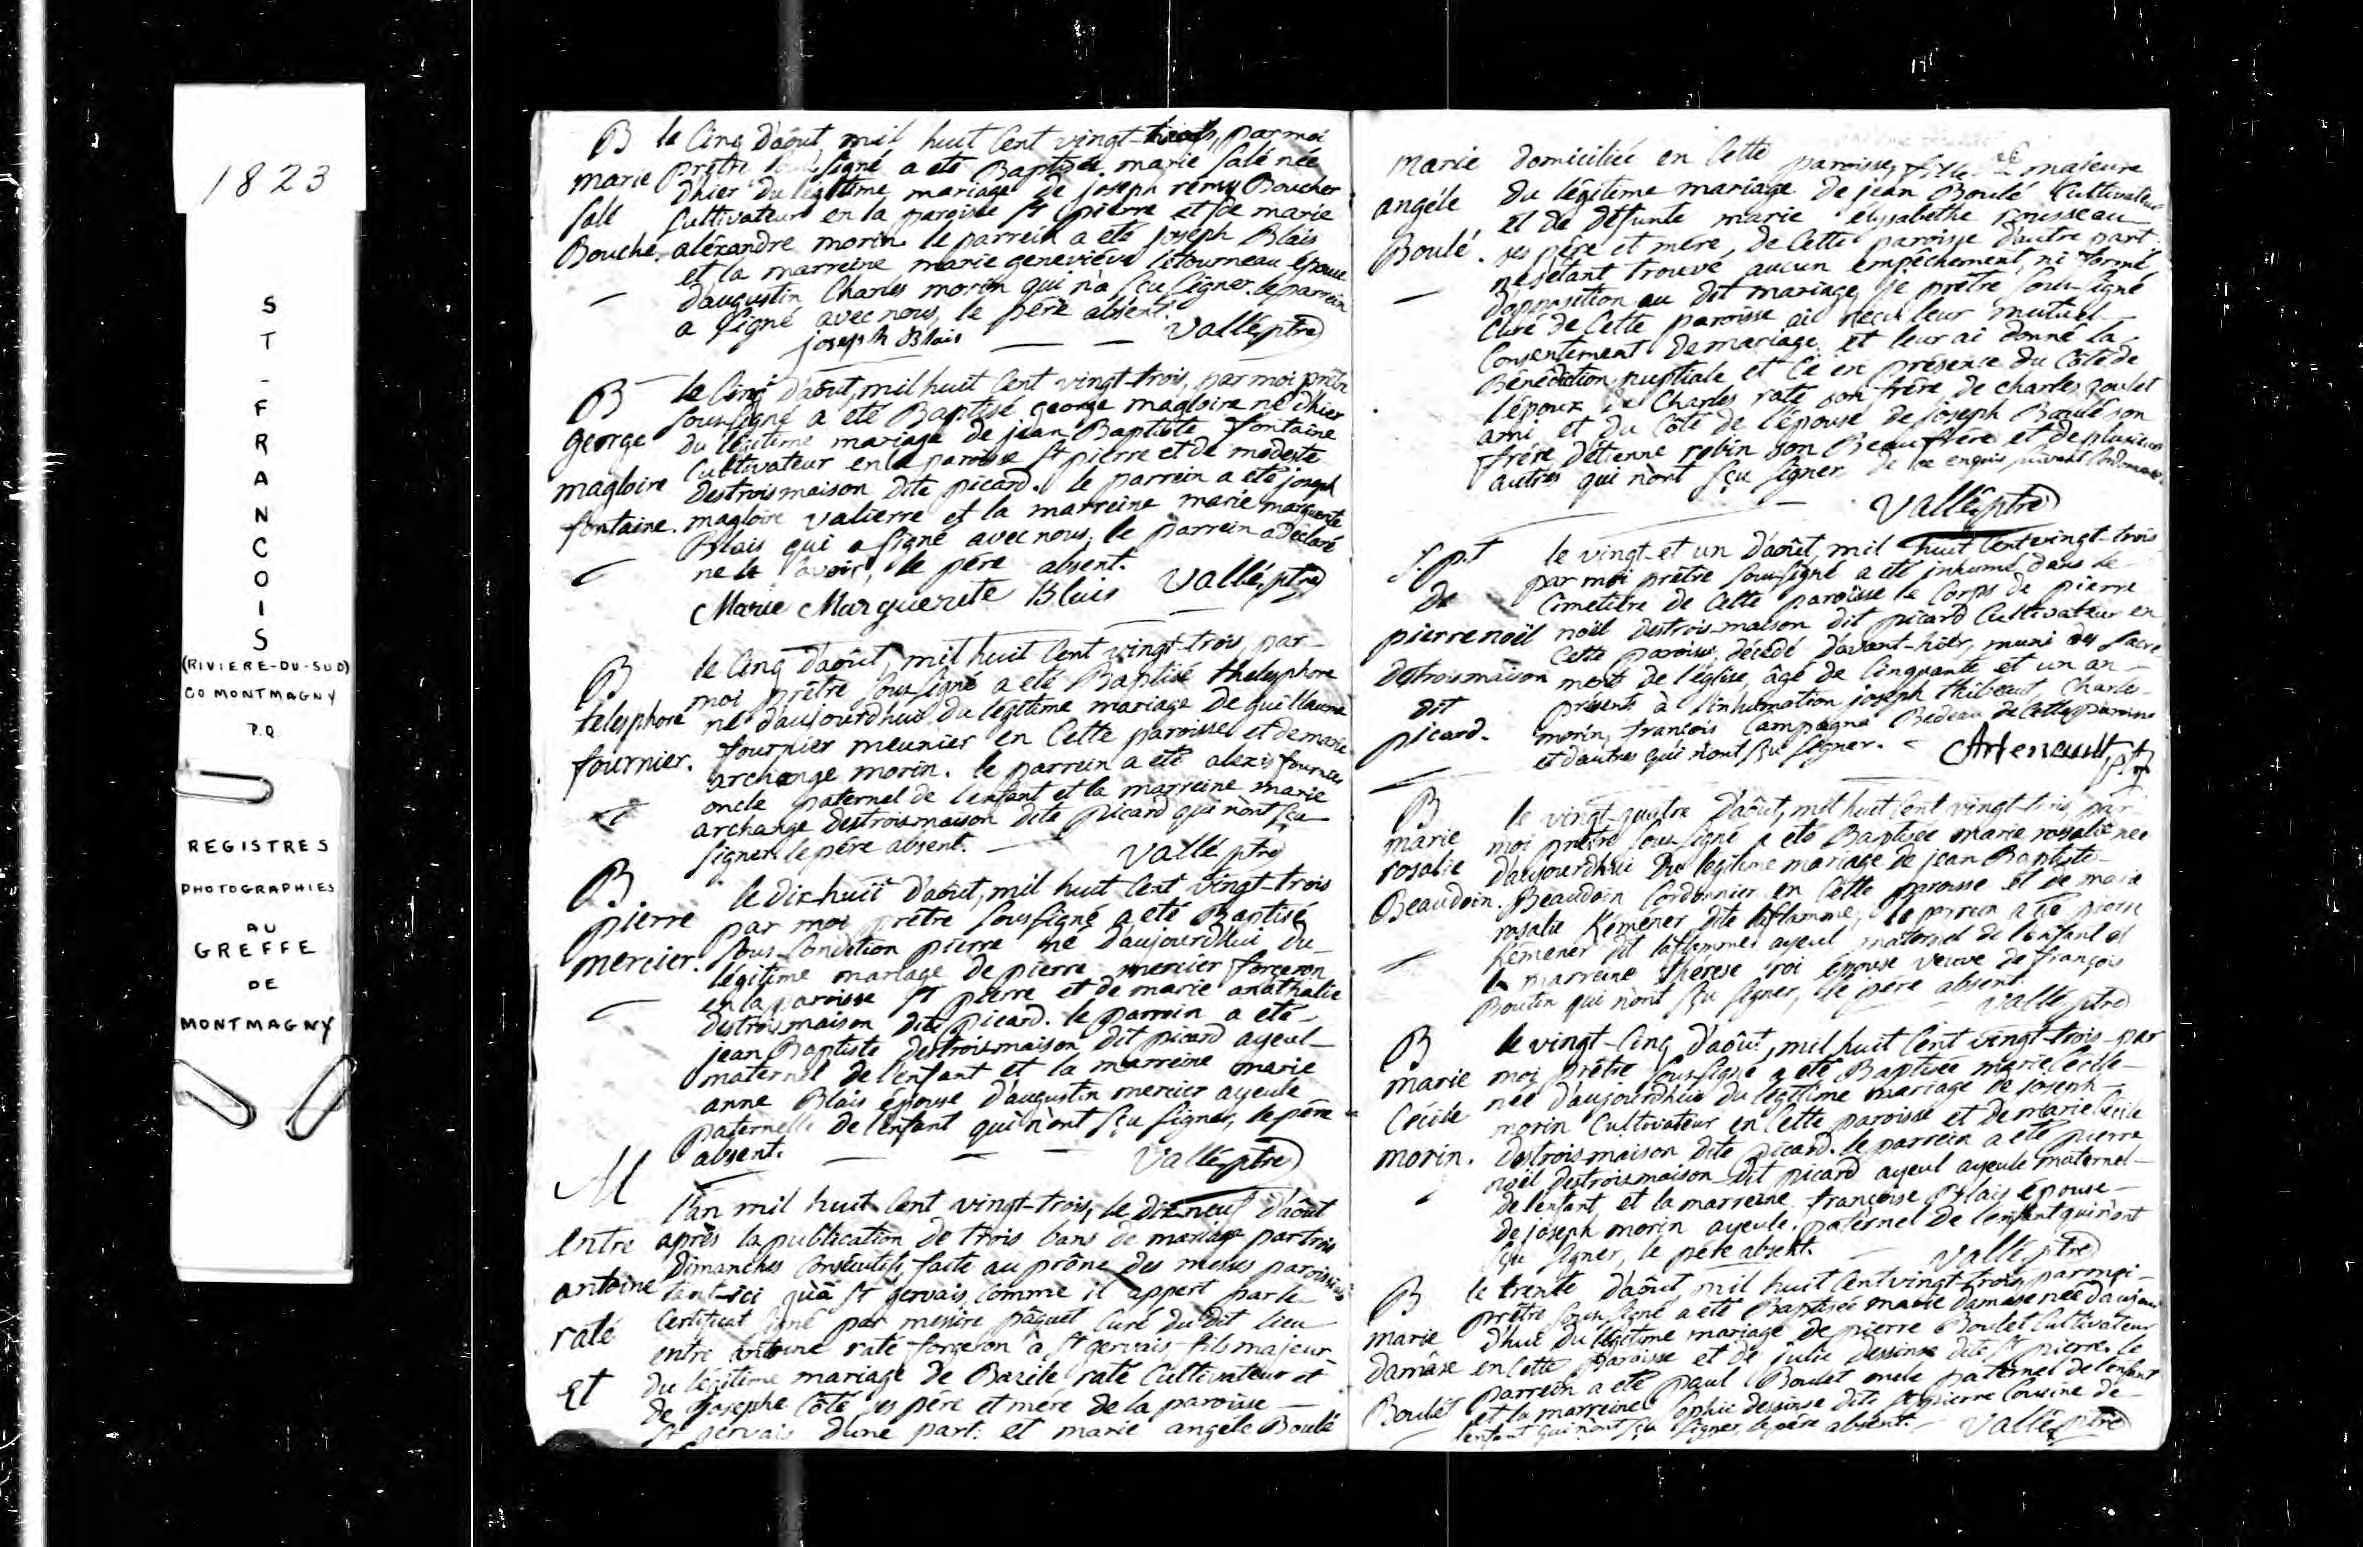 1823
ST-FRANCOIS
(RIVIERE-DU-SUD)
CO MONTMAGNY
P.Q
REGISTRES
PHOTOGRAPHIES
AU
GREFFE
DE
MONTMAGNY
B le cinq d'aôut, mil huit cent vingt-trois, par moi
marie prêtre sousigné a eté Baptisée marie salé née
d'hier du légitime mariage de joseph rémy Boucher
salé cultivateur en la paroisse st pierre et de marie
Bouché. aléxandre morin. le parrein a eté joseph Blais
et la marreine marie geneviéve létourneau épouse
d'augustin Charles morin qui n'a sçu signer. le parrein
a signé avec nous, le père absent.
joseph Blais Vallé, ptre
B le cinq d'aôut, mil huit cent vingt-trois, par moi prêtre
soussigné a eté Baptisé george magloire né d'hier
george du légitime mariage de jean Baptiste fontaine
cultivateur en la paroisse st pierre et de modeste
magloire destroismaison dite picard. le parrein a eté joseph
fontaine. magloire valierre et la marreine marie marguerite
Blais qui a signé avec nous, le parrein a déclaré
ne le savoir, le père absent.
Marie Marguerite Blais Vallé, ptre
B le cinq d'aôut, mil huit cent vingt-trois, par
moi prêtre soussigné a eté Baptisé thelesphore
telesphore né d'aujourd'hui du légitime mariage de guillaume
fournier meunier en cette paroisse et de marie
fournier. archange morin. le parrein a eté alexis fournier
oncle paternel de l'enfant et la marreine marie
archange destroismaison dite picard qui n'ont sçu
signer. le père absent. Vallé ptre
B le dix-huit d'aôut, mil huit cent vingt-trois
pierre par moi prêtre soussigné a eté Baptisé
sous-condition pierre né d'aujourd'hui du
mercier. légitime mariage de pierre mercier forgeron
en la paroisse st pierre et de marie anathalie
destroismaison dite picard. le parrein a eté
jean Baptiste destroismaison dit picard ayeul
maternel de l'enfant et la marreine marie
anne Blais épouse d'augustin mercier ayeule
paternelle de l'enfant qui n'ont sçu signer, le père
absent. Vallé, ptre
M l'an mil huit cent vingt-trois, le dix-neuf d'aôut
entre après la publication de trois bans de mariage par trois
dimanches consécutifs, faite au prône des messes paroissiales
antoine tant-ici qu'à st gervais comme il appert par le
certificat signé par messire pâquet curé du dit lieu
raté entre antoine raté forgeron à st gervais fils majeur
Et du légitime mariage de Bazile raté cultivateur et
de josephe Côté, ses père et mére de la paroisse
st gervais d'une part: et marie angéle Boulé
marie domiciliée en cette paroisse, fille majeure
angéle du légitime mariage de jean Boulé cultivateur
et de défunte marie élysabethe rousseau
Boulé. ses pére et mére, de cette paroisse d'autre part
ne s'étant trouvé aucun empêchement, ni formé
d'opposition au dit mariage, je prêtre sous-signé
curé de cette paroisse ai reçu leur mutuel
consentement de mariage et leur ai donné la
Bénédiction nuptiale et ce en présence du côté de
l'époux de Charles raté son frére, de charles goulet
ami et du côté de l'épouse de joseph Boulé son
frére, d'étienne robin son Beau frére et de plusieurs
autres qui n'ont sçu signer de ce enquis suivant l'ordonnance.
Vallé, ptre
S.p.t le vingt-et un d'aôut, mil huit cent vingt-trois
par moi prêtre soussigné a eté inhumé dans le
De cimetiére de cette paroisse le corps de pierre
pierre noël noël destrois-maison dit picard cultivateur en
cette paroisse, décédé d'avant-hier, muni des sacre
destroismaison ments de l'église, âgé de cinquante et un an
dit présents à l'inhumation joseph thibeaut, Charles
picard. morin, françois Campagna Bedeau de cette paroisse
et d'autres qui n'ont sçu signer. Arsenault, ptre
B le vingt-quatre d'aôut, mil huit cent vingt-trois, par
marie moi prêtre soussigné a eté Baptisée marie rosalie née
rosalie d'aujourd'hui du légitime mariage de jean Baptiste
Beaudoin. Beaudoin cordonnier en cette paroisse et de marie
rosalie Kéméner dite laflamme, le parrein a eté pierre
Kéméner dit laflamme ayeul maternel de l'enfant et
la marreine thérese roi épouse veuve de françois
Boutin qui n'ont sçu signer, le père absent.
Vallé, ptre
B le vingt-cinq d'aôut, mil huit cent vingt-trois par
marie moi prêtre soussigné a eté Baptisée marie Cécile
Cécile née d'aujourd'hui du légitime mariage de joseph
morin cultivateur en cette paroisse et de marie Cécile
morin. destroismaison dite picard. le parrein a eté pierre
noël destroismaison dit picard ayeul ayeule maternel
de l'enfant, et la marreine françoise Blais épouse
de joseph morin ayeule paternel de l'enfant qui n'ont
sçu signer, le père absent. Vallé, ptre
B le trente d'aôut, mil huit cent vingt-trois, par moi
prêtre soussigné a eté Baptisée marie damase née d'aujour
marie d'hui du légitime mariage de pierre Boulet cultivateur
damase en cette paroisse et de julie dessinse dite st pierre. le
parrein a eté paul Boulet oncle paternel de l'enfant
Boulet et la marreine sophie dessinse dite st pierre cousine de
l'enfant qui n'ont sçu signer, le père absent. Vallé, ptre